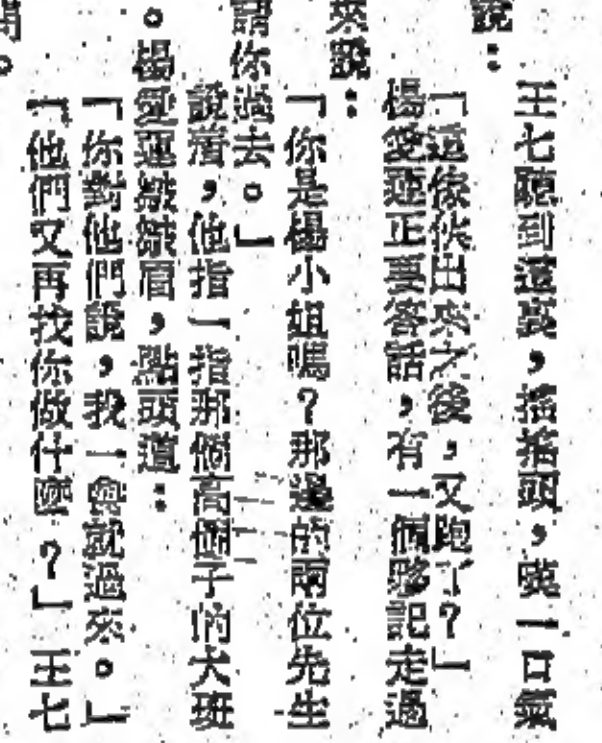 王七聽到這裏，搖搖頭，嘆一口氣
說：
「這傢伙出來之後，又跑了？」
楊愛蓮正要答話，有一個夥記走過
來說：
「你是楊小姐嗎？那邊的兩位先生
請你過去。」
說着，他指一指那個高個子的大班
。楊愛蓮皺皺眉，點頭道：
「你對他們說，我一會就過來。」
「他們又再找你做什麼？」王七
問。